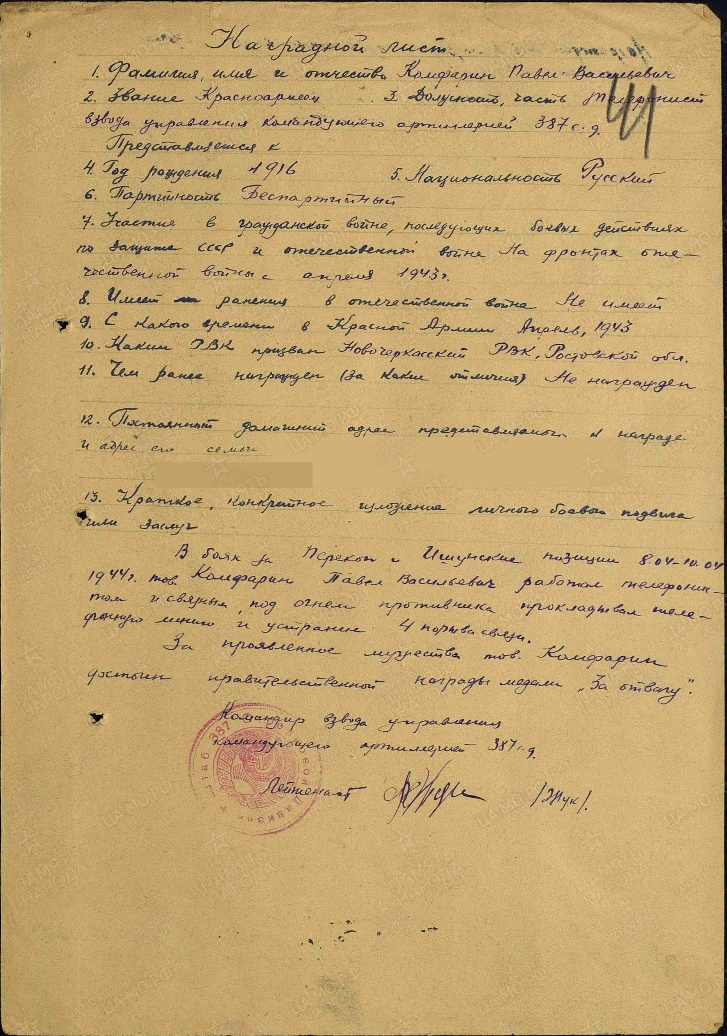 Наградной лист
1. Фамилия, имя и отчество Комфарин Павел Васильевич
2. Звание Красноармеец 3. Должность, часть Телефонист
взвода управления командующего артиллерией 387 с.д.
44
Представляется к
4. Год рождения 1916 5. Национальность Русский
6. Партийность Беспартийный
7. Участие в гражданской войне, последующих боевых действиях
по защите СССР и отечественной войне На фронтах оте-
чественной войны с апреля 1943 г.
8. Имеет ли ранения в отечественной война Не имеет
9. С какого времени в Красной Армии Апрель, 1943
10. Каким РВК призван Новочеркасский РВК, Ростовской обл.
11. Чем ранее награжден (за какие отличия) Не награжден
12. Постоянный домашний адрес представляемого к награде
и адрес его семьи
13. Краткое, конкретное изложение личного боевого подвига
или заслуг
В боях за Перекоп и Ишунские позиции 8.04-10.04
1944 г. тов. Комфарин Павел Васильевич работал телефонис-
том и связным, под огнем противника прокладывал теле-
фонную линию и устранил 4 порыва связи.
За проявленное мужество тов. Комфарин
достоин правительственной награды медали „За отвагу".
Командир взвода управления
командующего артиллерией 387 с.д.
Лейтенант /Жук/.
Штаб 387